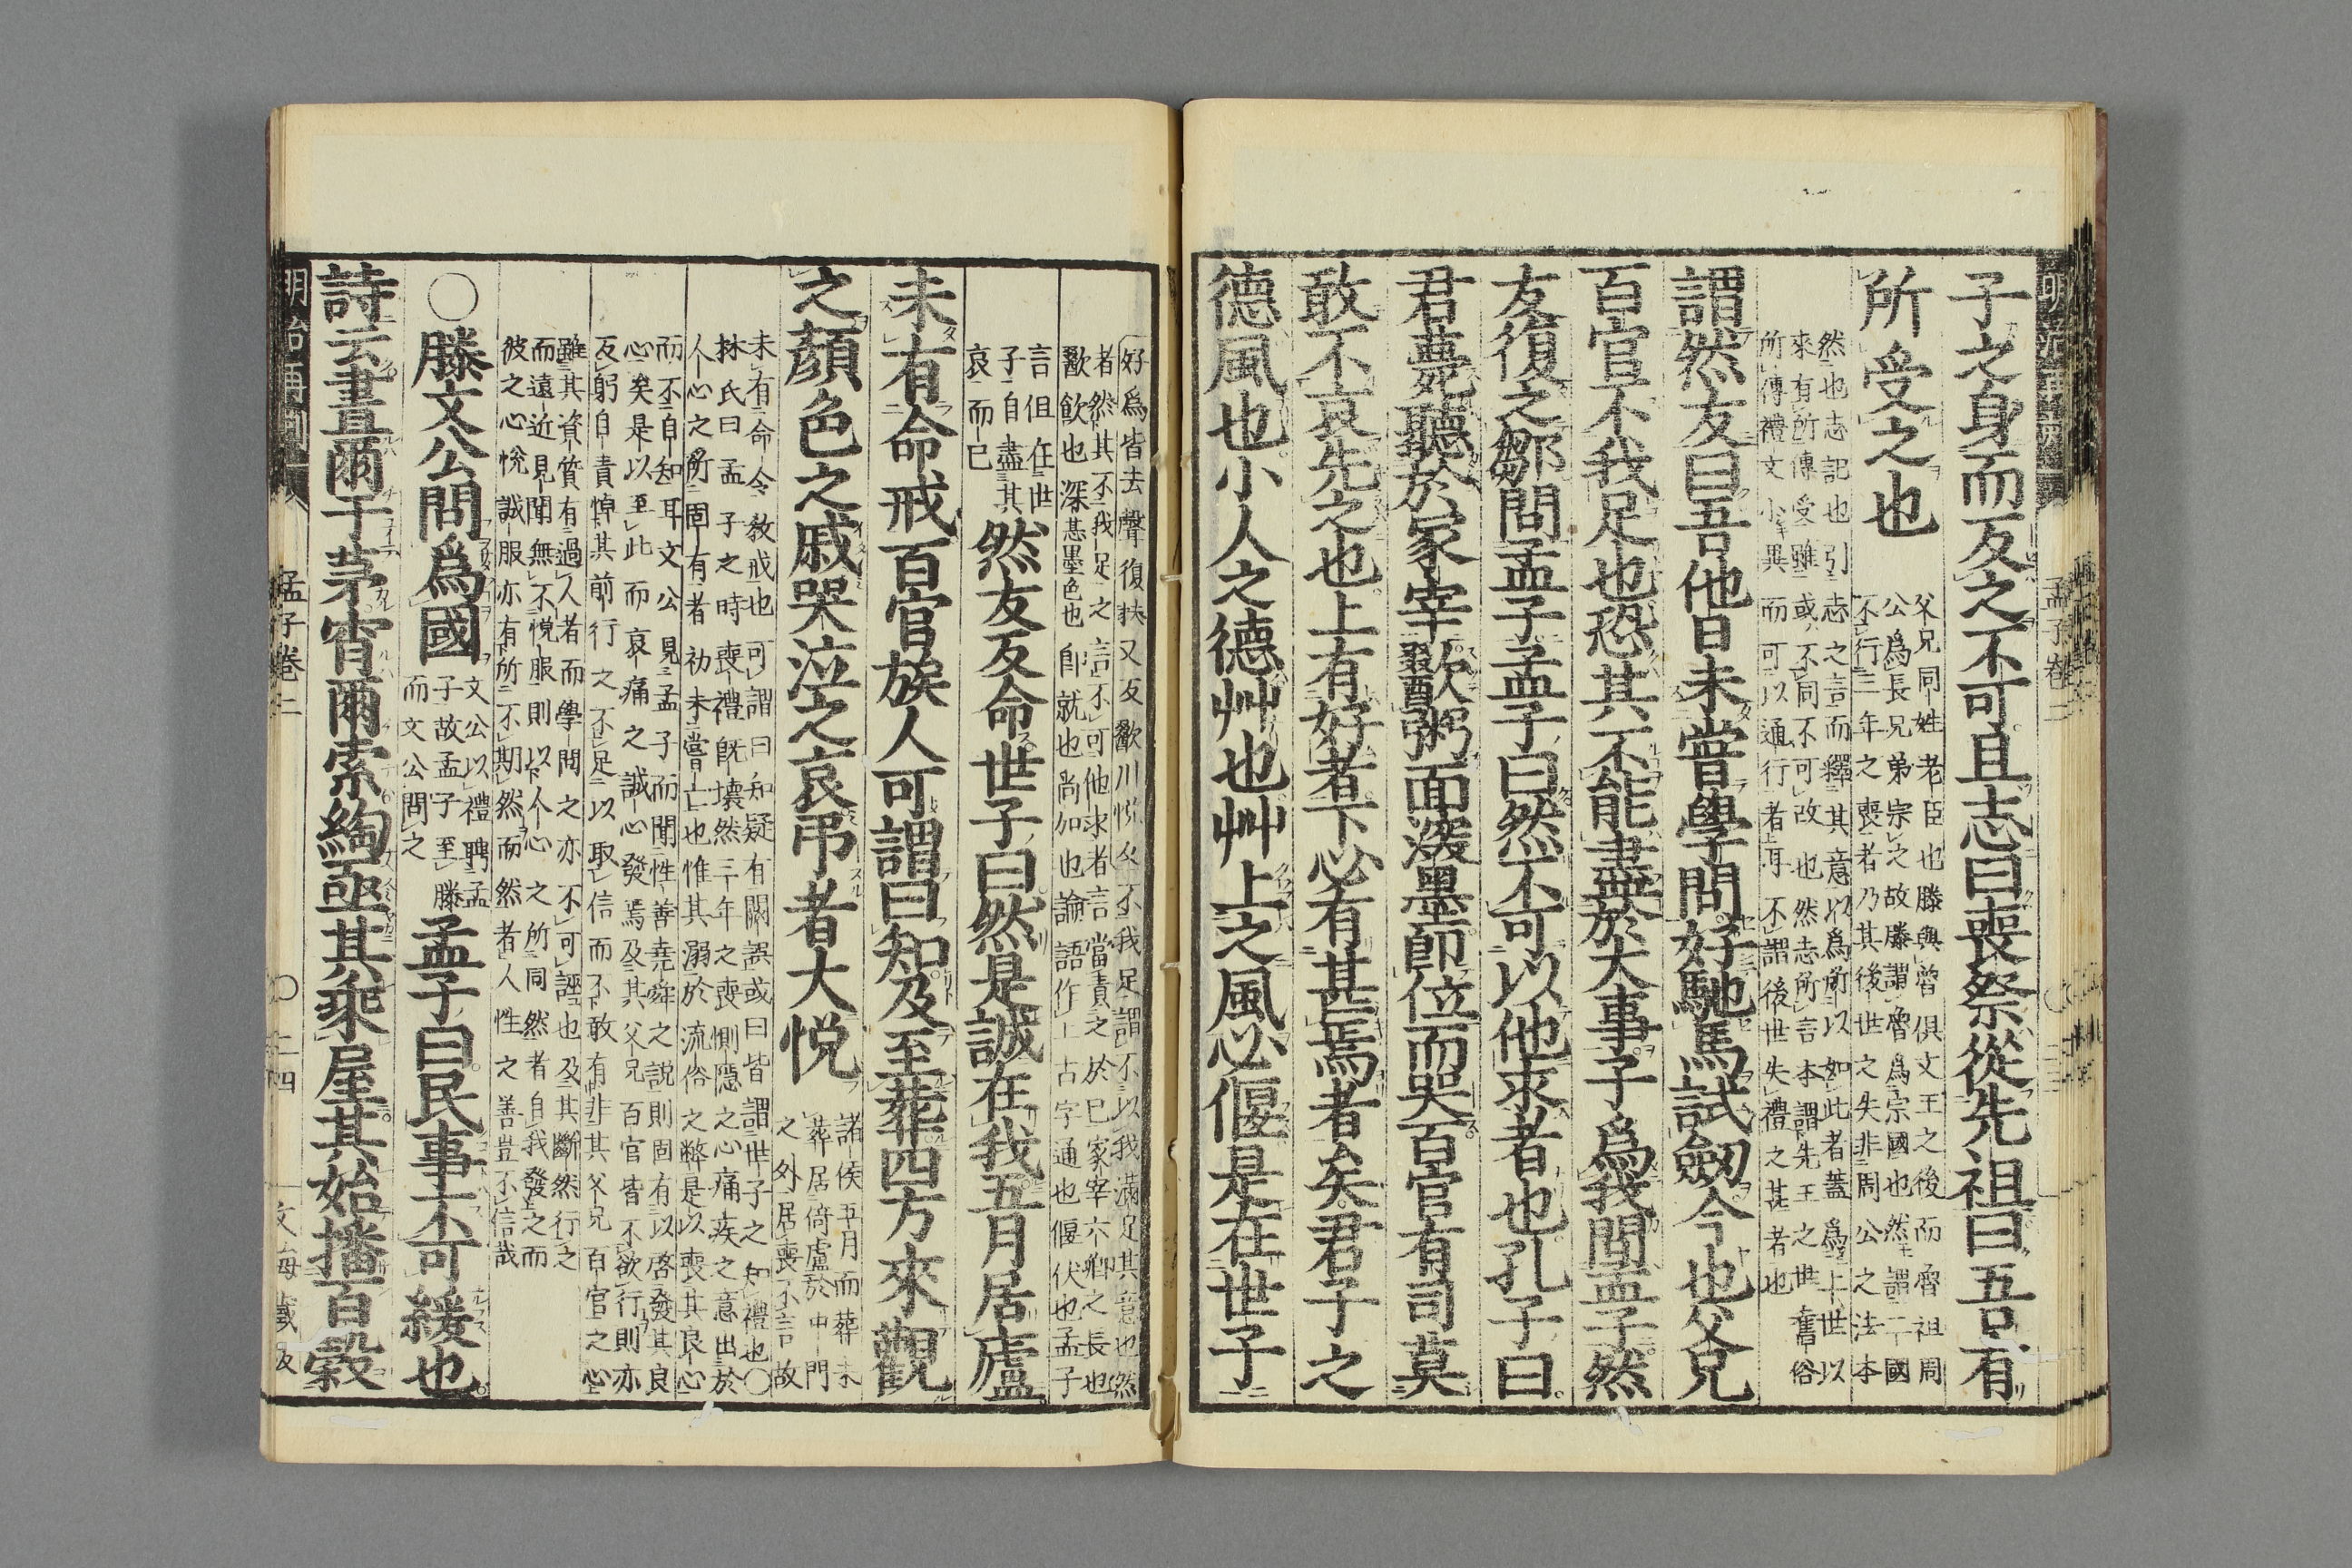 子之身而反之不可且志曰喪祭從先祖曰吾有
所受之也
父兄同姓老臣也滕與魯俱文王之後而魯祖周
公爲長兄弟宗之故滕謂魯爲宗國也然謂二國
不行三年之喪者乃其後世之失非周公之法本
然也志記也引志之言而釋其意以爲所以如此者蓋爲上世以
來有所傳受雖或不同不可改也然志所言本謂先王之世舊俗
所傳禮文小異而可以通行者耳不謂後世失禮之甚者也
謂然友曰吾他日未嘗學問好馳馬試劒今也父兄
百官不我足也恐其不能盡於大事子爲我問孟子然
友復之鄒問孟子孟子曰然不可以他求者也孔子曰
君薨聽於冢宰歠粥面深墨卽位而哭百官有司莫
敢不哀先之也上有好者下必有甚焉者矣君子之
德風也小人之德艸也艸上之風必偃是在世子
好爲皆去聲復扶又反歠川悅反不我足謂不以我滿足其意也然
者然其不我足之言不可他求者言當責之於己冢宰六卿之長也
歠飮也深墨甚墨色也卽就也尚加也論語作上古字通也偃伏也孟子
言但在世
子自盡其
哀而已
然友反命世子曰然是誠在我五月居廬
未有命戒百官族人可謂曰知及至葬四方來觀
之顏色之戚哭泣之哀弔者大悅
諸侯五月而葬未
葬居倚廬於中門
之外居喪不言故
未有命令敎戒也可謂曰知疑有闕誤或曰皆謂世子之知禮也○
林氏曰孟子之時喪禮旣壞然三年之喪惻隱之心痛疾之意出於
人心之所固有者初未嘗亡也惟其溺於流俗之弊是以喪其良心
而不自知耳文公見孟子而聞性善堯舜之說則固有以啓發其良
心矣是以至此而哀痛之誠心發焉及其父兄百官皆不欲行則亦
反躬自責悼其前行之不足以取信而不敢有非其父兄百官之心
雖其資質有過人者而學問之亦不可誣也及其斷然行之
而遠近見聞無不悅服則以人心之所同然者自我發之而
彼之心悅誠服亦有所不期然而然者人性之善豈不信哉
○滕文公問爲國
文公以禮聘孟
子故孟子至滕
而文公問之
孟子曰民事不可緩也
詩云晝爾于茅宵爾索綯亟其乘屋其始播百穀
孟子卷二
二四